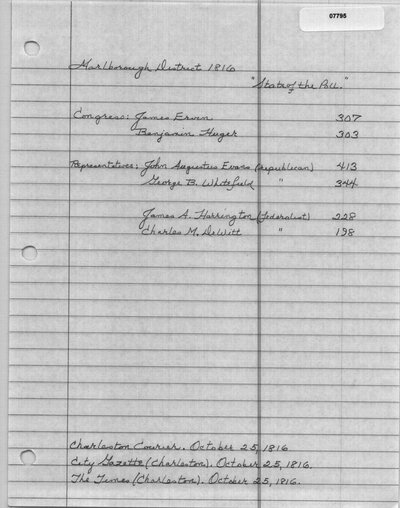 07795
Marlborough District 1816
"State of the Poll."
Congress: James Ervin 307
Benjamin Huger 303
Representatives: John Augustus Evans (republican) 413
George B. Whitefield " 344
James A. Harrington (Federalist) 228
Charles M. DeWitt " 198
Charleston Courier. October 25, 1816
City Gazette (Charleston). October 25, 1816.
The Times (Charleston). October 25, 1816.